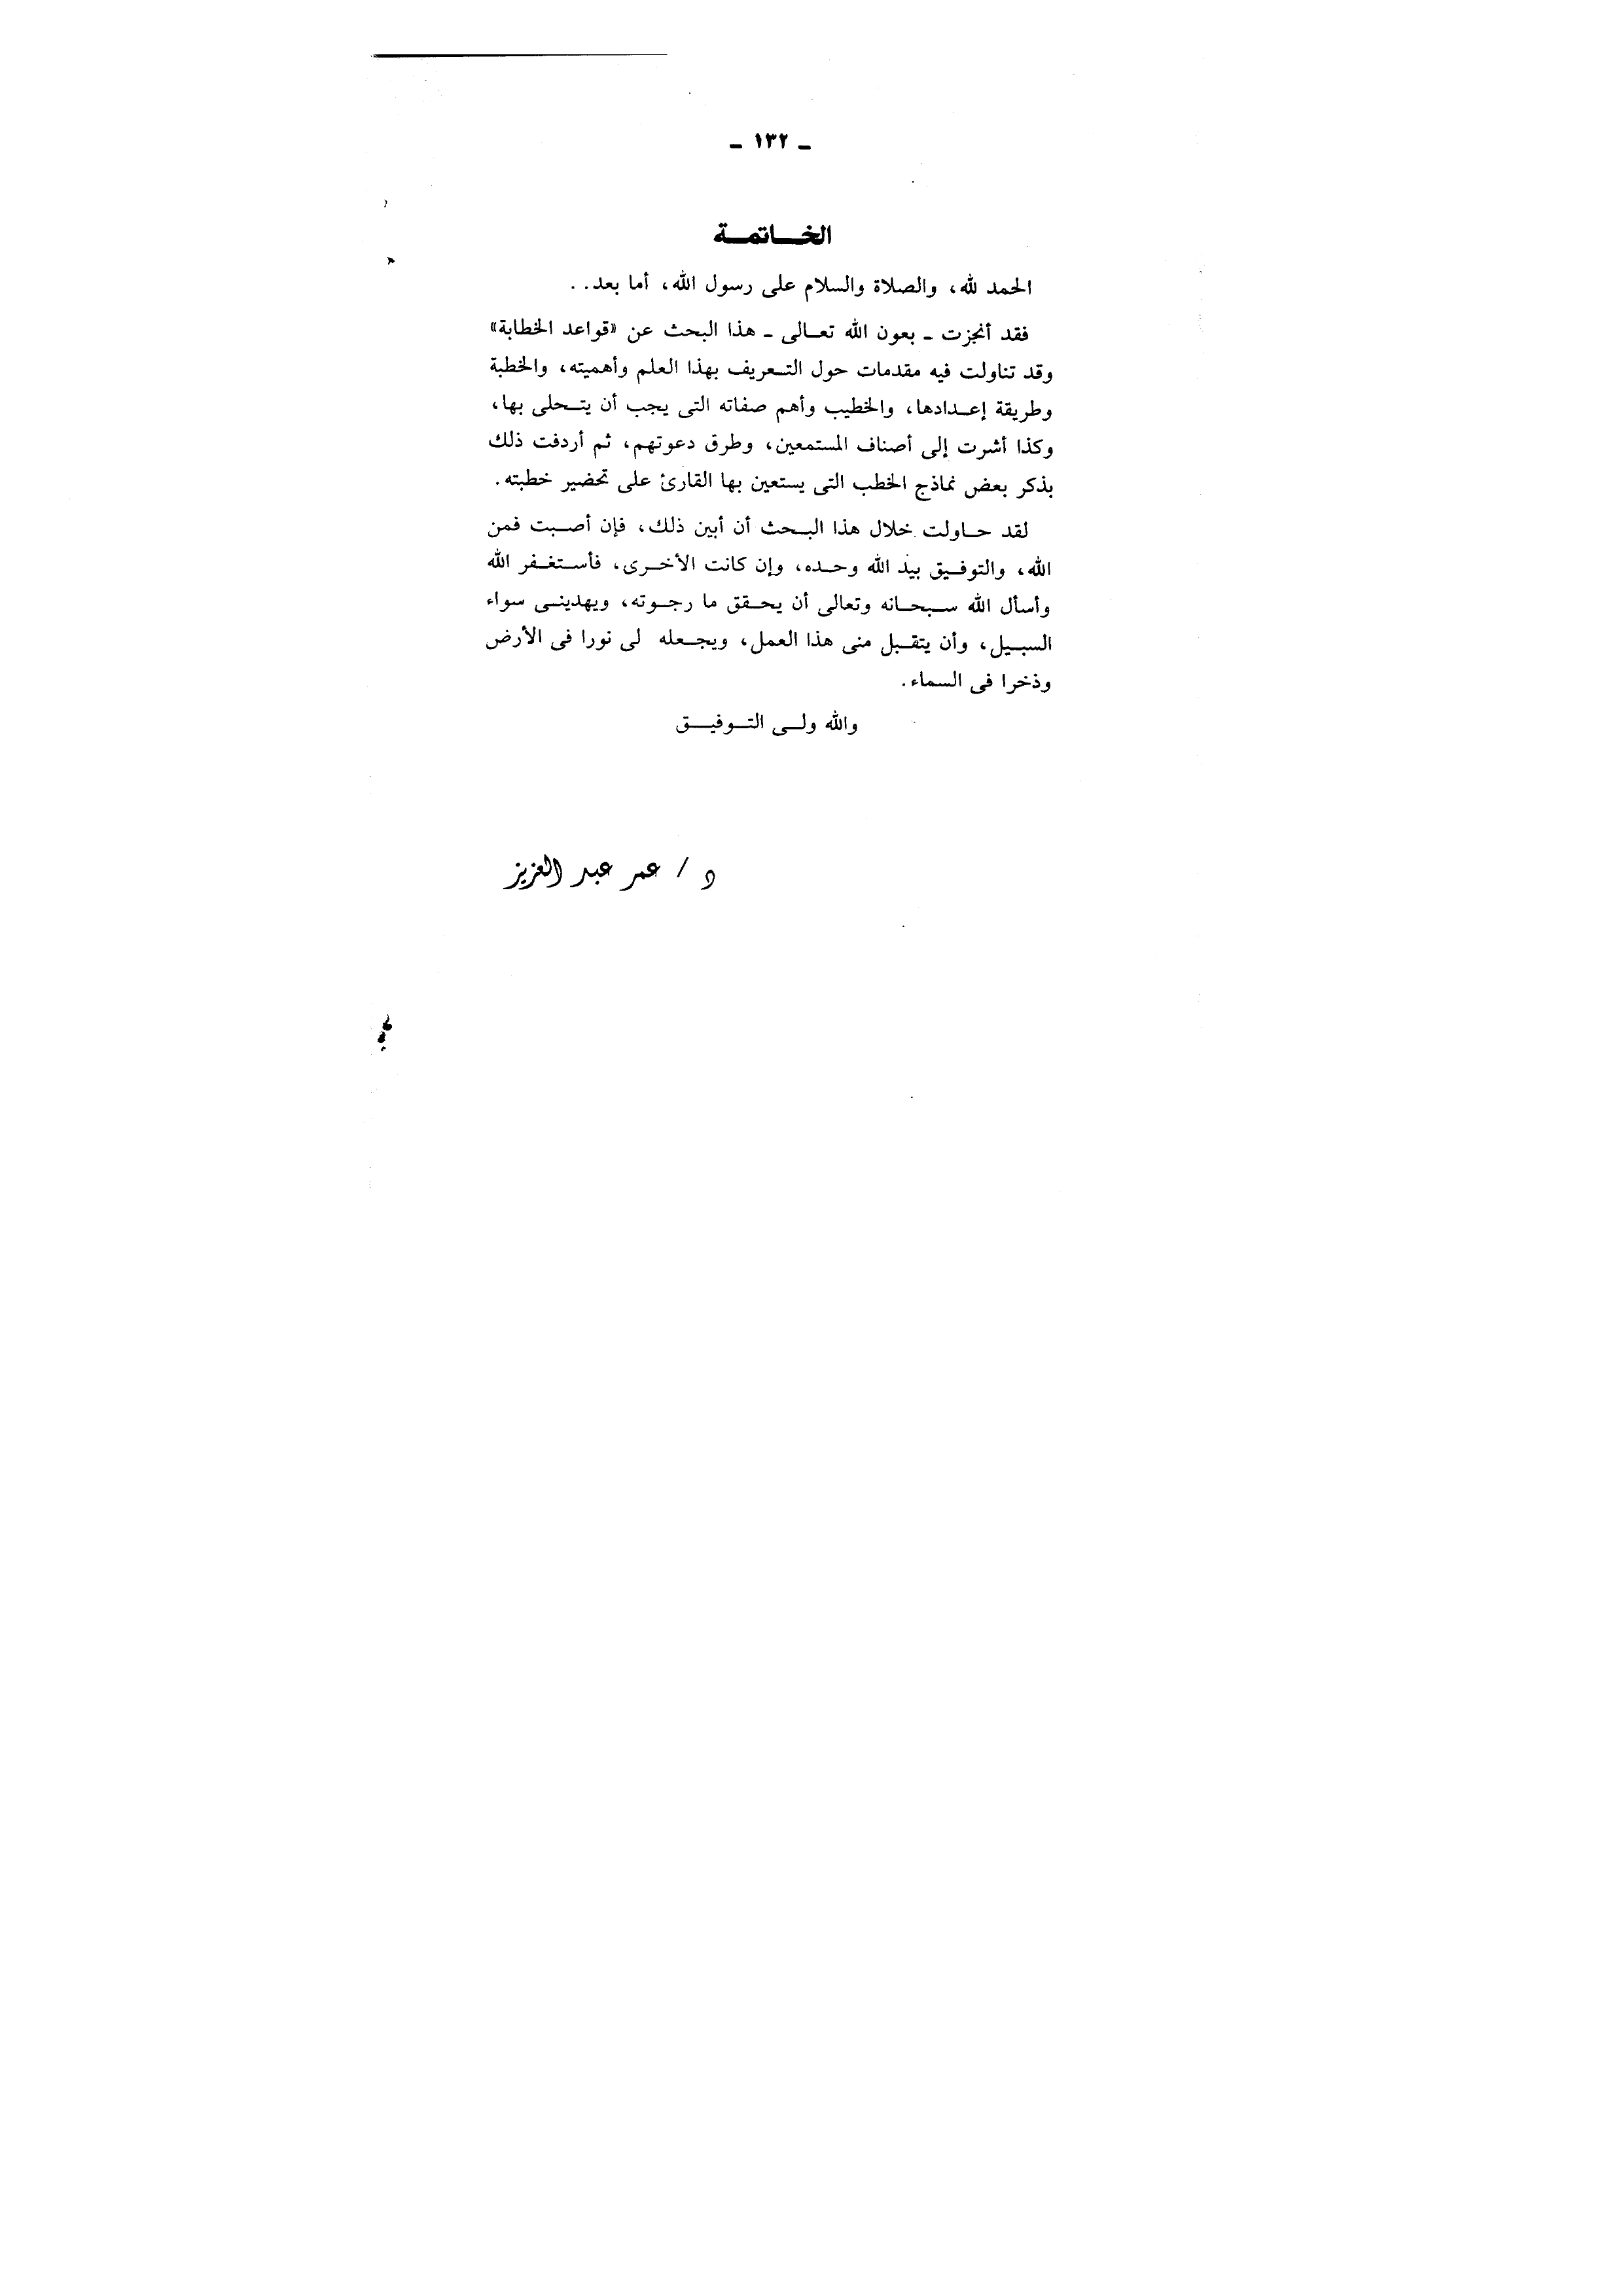 ـ ١٣٢ ـ
الخـــاتمـــة
الحمد لله، والصلاة والسلام على رسول الله، أما بعد. .
فقد أنجزت ـ بعون الله تعـالى ـ هذا البحث عن «قواعد الخطابة»
وقد تناولت فيه مقدمات حول التـعريف بهذا العلم وأهميته، والخطبة
وطريقة إعـدادها، والخطيب وأهم صفاته التى يجب أن يتـحلى بها،
وكذا أشرت إلى أصناف المستمعين، وطرق دعوتهم، ثم أردفت ذلك
بذكر بعض نماذج الخطب التى يستعين بها القارئ على تحضير خطبته.
لقد حـاولت خلال هذا البـحث أن أبين ذلك، فإن أصـبت فمن
الله، والتوفـيق بيد الله وحـده، وإن كانت الأخـرى، فأسـتغـفر الله
وأسأل الله سـبحـانه وتعالى أن يحـقق ما رجـوته، ويهدينـى سواء
السبـيل، وأن يتقـبل منى هذا العمل، ويجـعله لى نورا فى الأرض
وذخرا فى السماء.
والله ولـى التـوفيـــق
د / عمر عبد العزيز